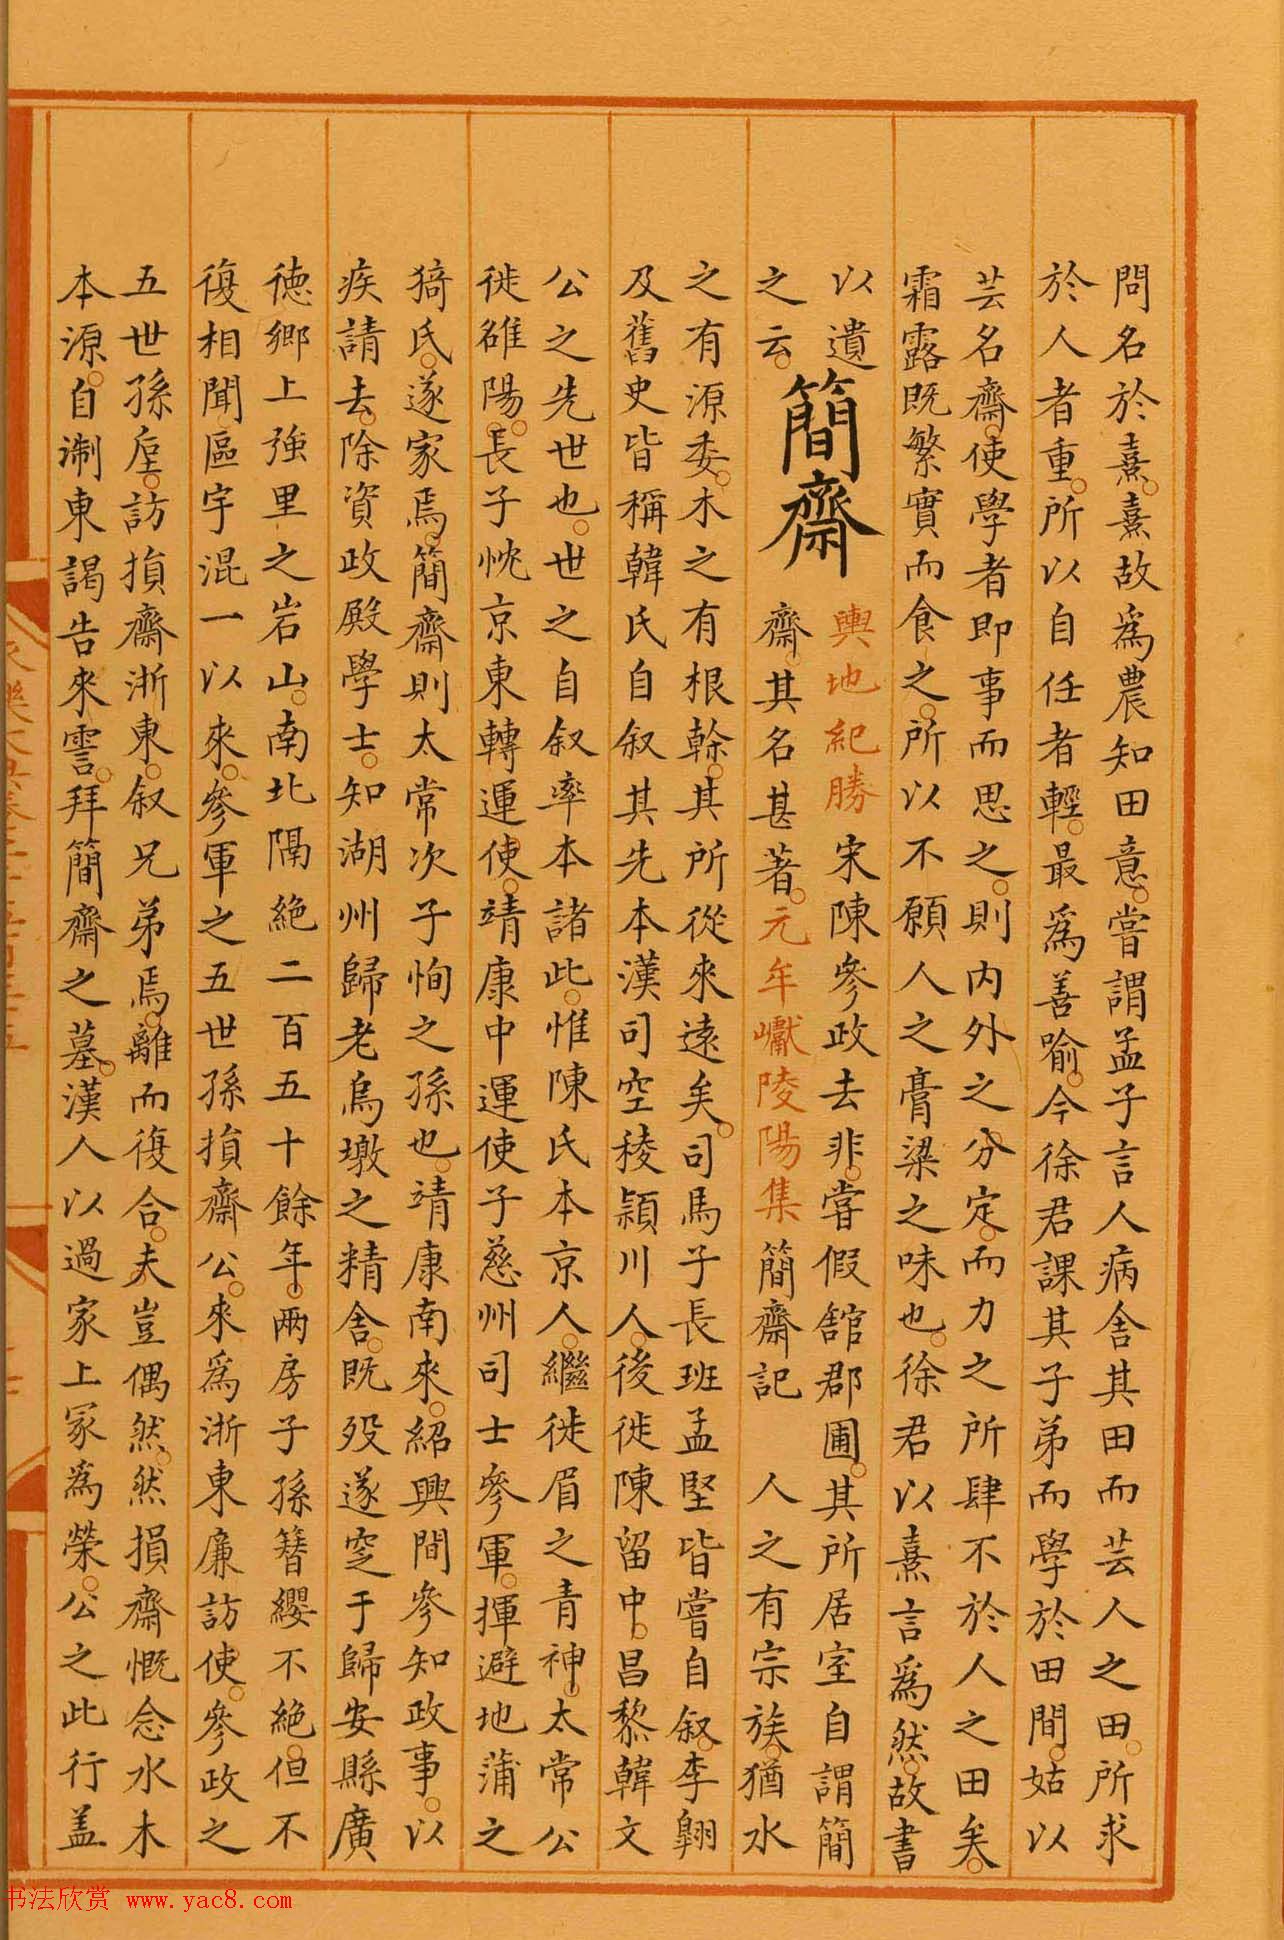 問名於熹熹故為農知田意嘗謂孟子言人病舍其田而芸人之田所求
於人者重所以自任者輕最為善喻今徐君課其子弟而學於田間姑以
芸名齋使學者即事而思之則内外之分定而力之所肆不於人之田矣
霜露既繁實而食之所以不願人之膏粱之味也徐君以熹言為然故書
以遺
之云
簡齋
輿地紀勝宋陳參政去非嘗假舘郡圃其所居室自謂簡
齋其名甚著元牟巘陵陽集簡齋記 人之有宗族猶水
之有源委木之有根榦其所從來遠矣司馬子長班孟堅皆嘗自叙李翱
及舊史皆稱韓氏自叙其先本漢司空稜潁川人後徙陳留中昌黎韓文
公之先世也世之自叙率本諸此惟陳氏本京人繼徙眉之青神太常公
徙雒陽長子忱京東轉運使靖康中運使子慈州司士參軍揮避地蒲之
猗氏遂家焉簡齋則太常次子恂之孫也靖康南來紹興間參知政事以
疾請去除資政殿學士知湖州歸老烏墩之精舍既殁遂窆于歸安縣廣
德鄉上強里之岩山南北隔絶二百五十餘年兩房子孫簪纓不絶但不
復相聞區宇混一以來參軍之五世孫損齋公來為浙東廉訪使參政之
五世孫垕訪損齋浙東叙兄弟焉離而復合夫豈偶然然損齋慨念水木
本源自淛東謁告來霅拜簡齋之墓漢人以過家上冢為榮公之此行盖
书法欣赏 www.yac8.com